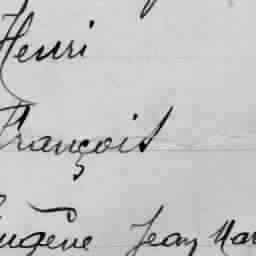 Henri
François
Eugène Jean Mar